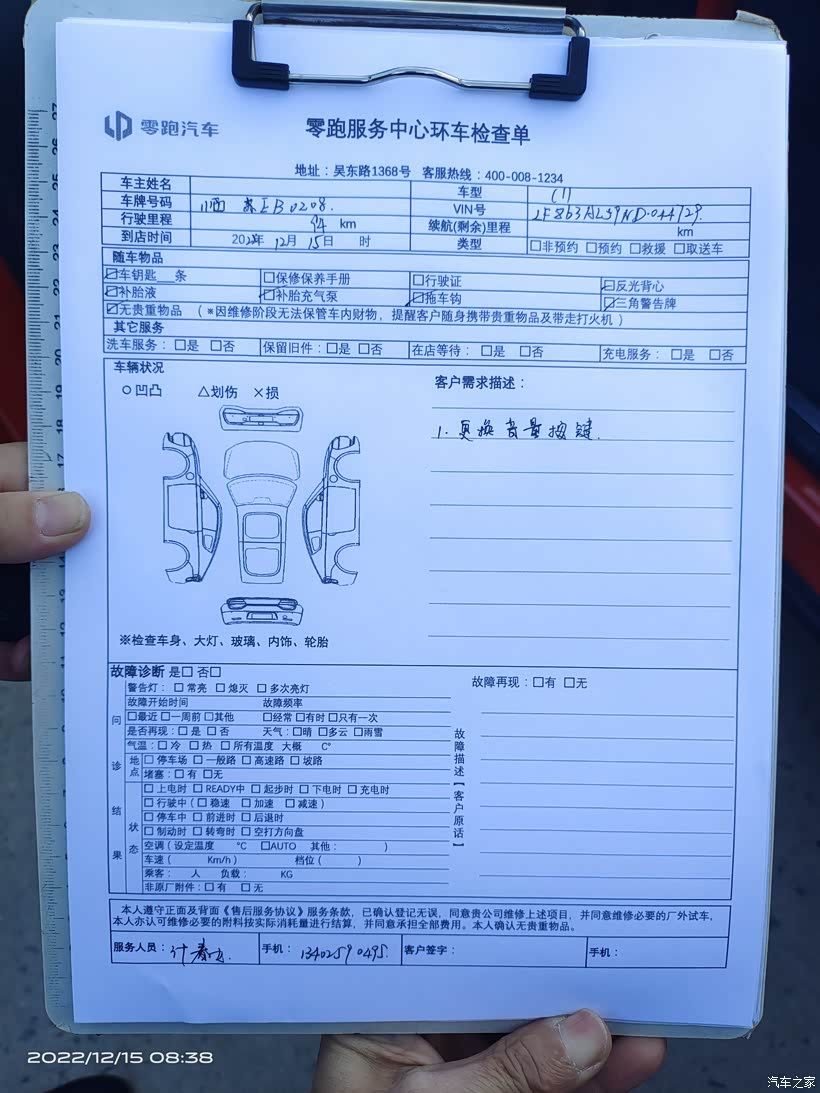 零跑汽车
零跑服务中心环车检查单
地址：吴东路1368号 客服热线：400-008-1234
车主姓名 车型
车牌号码 苏EB0208. VIN号
行驶里程 km 续航(剩余)里程 km
到店时间 2022年 12月 15日 时 类型 □非预约 □预约 □救援 □取送车
随车物品
☑车钥匙___条 □保修保养手册 □行驶证 ☑反光背心
☑补胎液 ☑补胎充气泵 ☑拖车钩 ☑三角警告牌
☑无贵重物品 （*因维修阶段无法保管车内财物，提醒客户随身携带贵重物品及带走打火机）
其它服务
洗车服务：□是 □否 保留旧件：□是 □否 在店等待：□是 □否 充电服务：□是 □否
车辆状况
○凹凸 △划伤 ×损
客户需求描述：
1. 更换音量按键.
※检查车身、大灯、玻璃、内饰、轮胎
故障诊断 是□ 否□
问诊结果
警告灯：□常亮 □熄灭 □多次亮灯
故障开始时间 故障频率
□最近 □一周前 □其他 □经常 □有时 □只有一次
是否再现：□是 □否 天气：□晴 □多云 □雨雪
气温：□冷 □热 □所有温度 大概 C°
地点
□停车场 □一般路 □高速路 □坡路
堵塞：□有 □无
状态
□上电时 □READY中 □起步时 □下电时 □充电时
□行驶中（□稳速 □加速 □减速）
□停车中 □前进时 □后退时
□制动时 □转弯时 □空打方向盘
空调（设定温度 °C □AUTO 其他： ）
车速（ Km/h） 档位（ ）
乘客： 人 负载： KG
非原厂附件：□有 □无
故障描述【客户原话】
故障再现：□有 □无
本人遵守正面及背面《售后服务协议》服务条款，已确认登记无误，同意贵公司维修上述项目，并同意维修必要的厂外试车，
本人亦认可维修必要的附料按实际消耗量进行结算，并同意承担全部费用。本人确认无贵重物品。
服务人员： 手机：13402590495. 客户签字： 手机：
2022/12/15 08:38
汽车之家